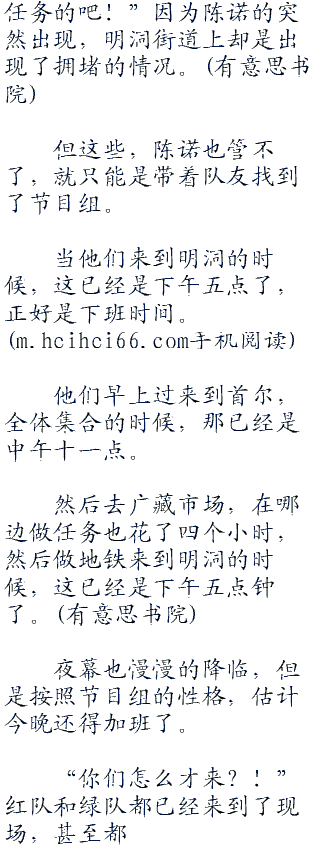 任务的吧！”因为陈诺的突
然出现，明洞街道上却是出
现了拥堵的情况。(有意思书
院)
但这些，陈诺也管不
了，就只能是带着队友找到
了节目组。
当他们来到明洞的时
候，这已经是下午五点了，
正好是下班时间。
(m.hcihci66.com手机阅读)
他们早上过来到首尔，
全体集合的时候，那已经是
中午十一点。
然后去广藏市场，在哪
边做任务也花了四个小时，
然后做地铁来到明洞的时
候，这已经是下午五点钟
了。(有意思书院)
夜幕也慢慢的降临，但
是按照节目组的性格，估计
今晚还得加班了。
“你们怎么才来？！”
红队和绿队都已经来到了现
场，甚至都